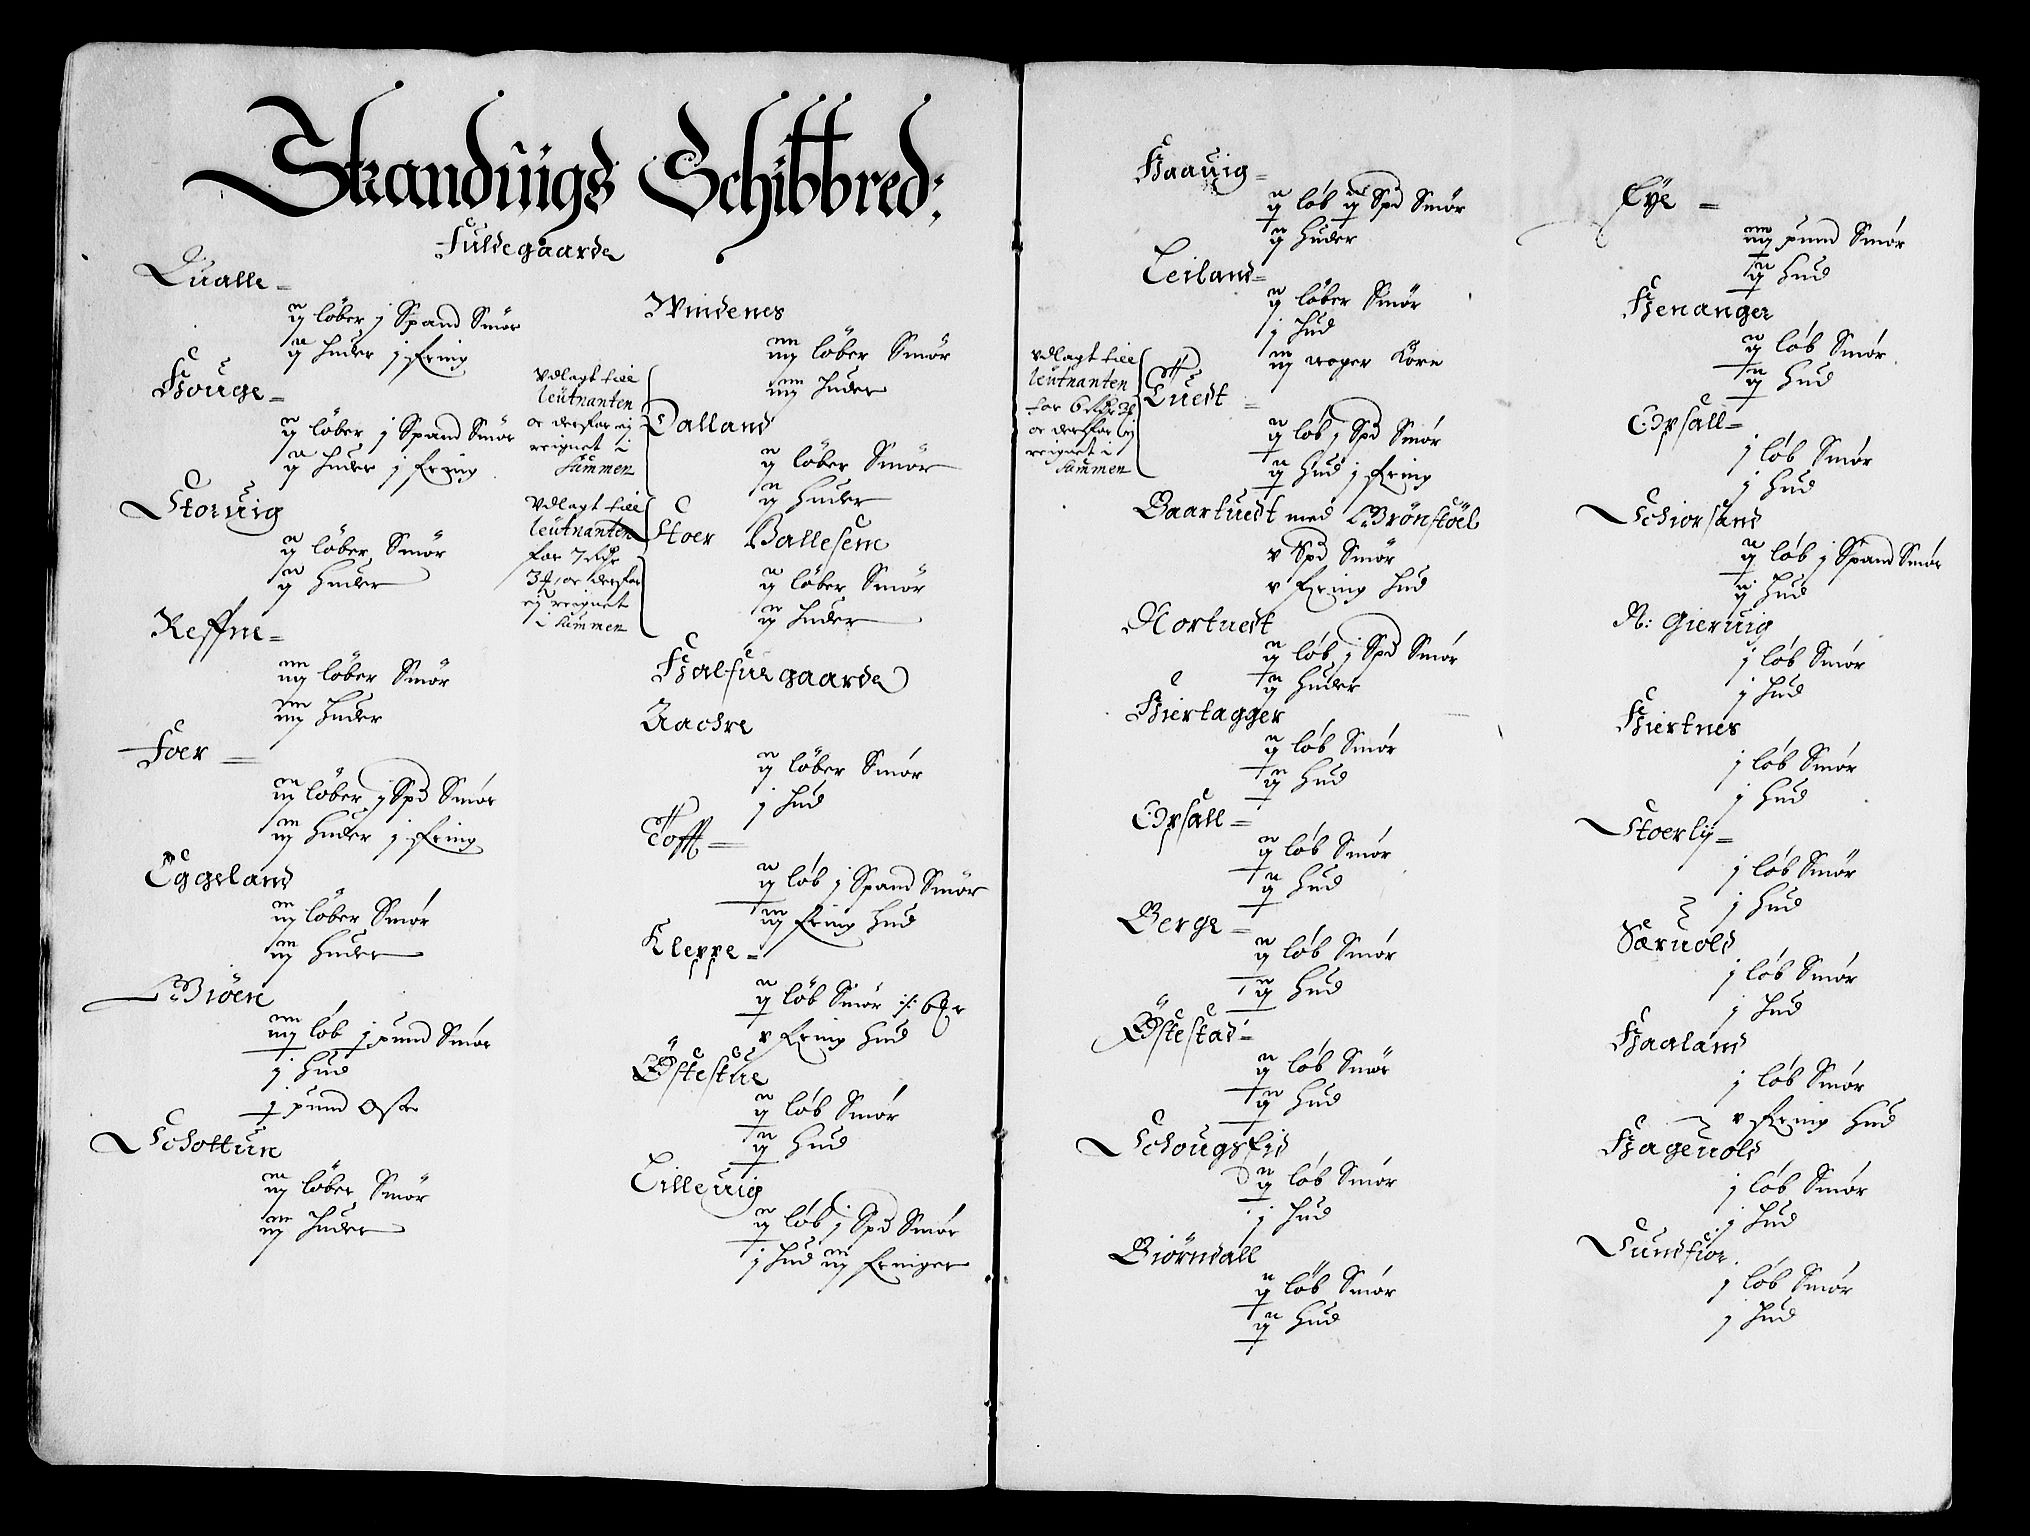 Strandvigs Schibbred:
Fuldegaarde
Qualle
ij løber j Spand Smør
ij huder j Fring
Houge
ij løber j Spand Smør
ij huder j Fring
Storuig
ij løber Smør
ij huder
Reffne
iiij løber Smør
iiij huder
Foer
iij løber j Spd Smør
iij huder j Fring
Eggeland
iij løber Smør
iij huder
Biöen
iiij løb j pund Smör
j hud
j pund Oste
Schottun
iij løber Smør
iij huder
Windenes
iiij løber Smør
iiij huder
vdlagt till
leütnanten
oc derfor ej
reignet i
Summen
Dalland
ij løber Smør
ij huder
vdlagt till
leütnanten
for 7 Rdr
3 ƒ, oc derfor
ej reignet
i Summen
Stoer Ballesem
ij løber Smør
ij huder
Halfue gaarde
Aadre
ij løber Smør
j hud
Tofft
ij løb j Spand Smør
iij Fring hud
Kleppe
ij löb Smör
v Fring hud
Östestue
ij løb Smør
ij hud
Lilleuig
ij løb j Spd Smør
j hud iij Fringer
Haauig
ij løb ij Spd Smör
ij huder
Leiland
ij løber Smør
j hud
iij woger Korn
vdlagt till
leütnanten
for 6 Rdr
oc derfor ej
reignet i
Summen
Tuedt
ij løb j Spd Smør
ij hud j Fring
Baartuedt med Brönstöel
v Spd Smör
v Fring hud
Nortuedt
ij løb j Spd Smör
ij huder
Hiertagger
ij løb Smør
ij hud
Opsall
ij løb Smør
ij hud
Berge
ij løb Smør
ij hud
Östestad
ij løb Smör
ij hud
Schougs Eid
ij løb Smør
j hud
Biörndall
ij löb Smör
ij hud
Eye
iiij pund Smør
ij hud
Henanger
ij løb Smør
ij hud
Opsall
j løb Smør
j hud
Schiorsand
ij løb j Spand Smör
ij hud
N: Gieruig
j løb Smør
j hud
Hiertnes
j løb Smør
j hud
Stoerlij
j løb Smör
j hud
Særuold
j løb Smør
j hud
Haaland
j løb Smør
v Fring hud
Hageuold
j løb Smør
j hud
Sundfior
j løb Smør
j hud